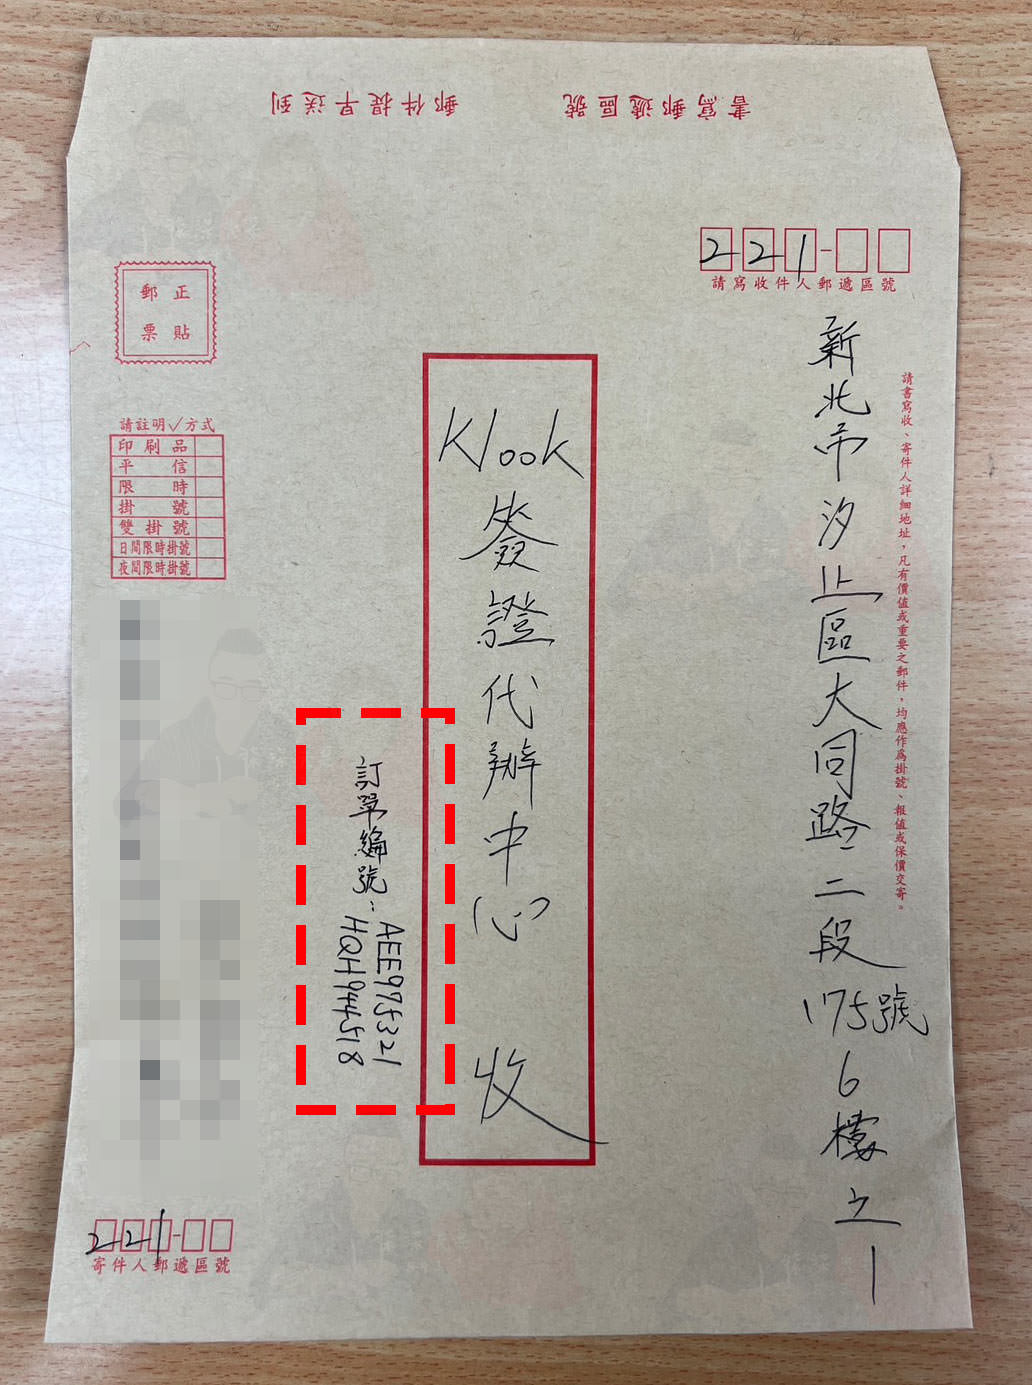 書寫郵遞區號
郵件提早送到
221
請寫收件人郵遞區號
請書寫收、寄件人詳細地址，凡有價值或重要之郵件，均應作為掛號、報值或保價交寄。
新北市汐止區大同路二段175號6樓之1
Klook簽證代辦中心 收
訂單編號：AEE975321
HQH944518
正貼
郵票
請註明✓方式
印刷品
平信
限時
掛號
雙掛號
日間限時掛號
夜間限時掛號
221
寄件人郵遞區號